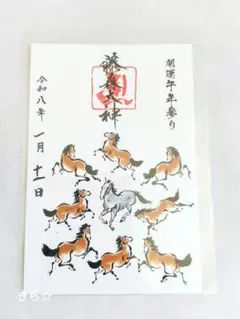 開運午年参り
藤森大神
令和八年 一月十一日
きら☆